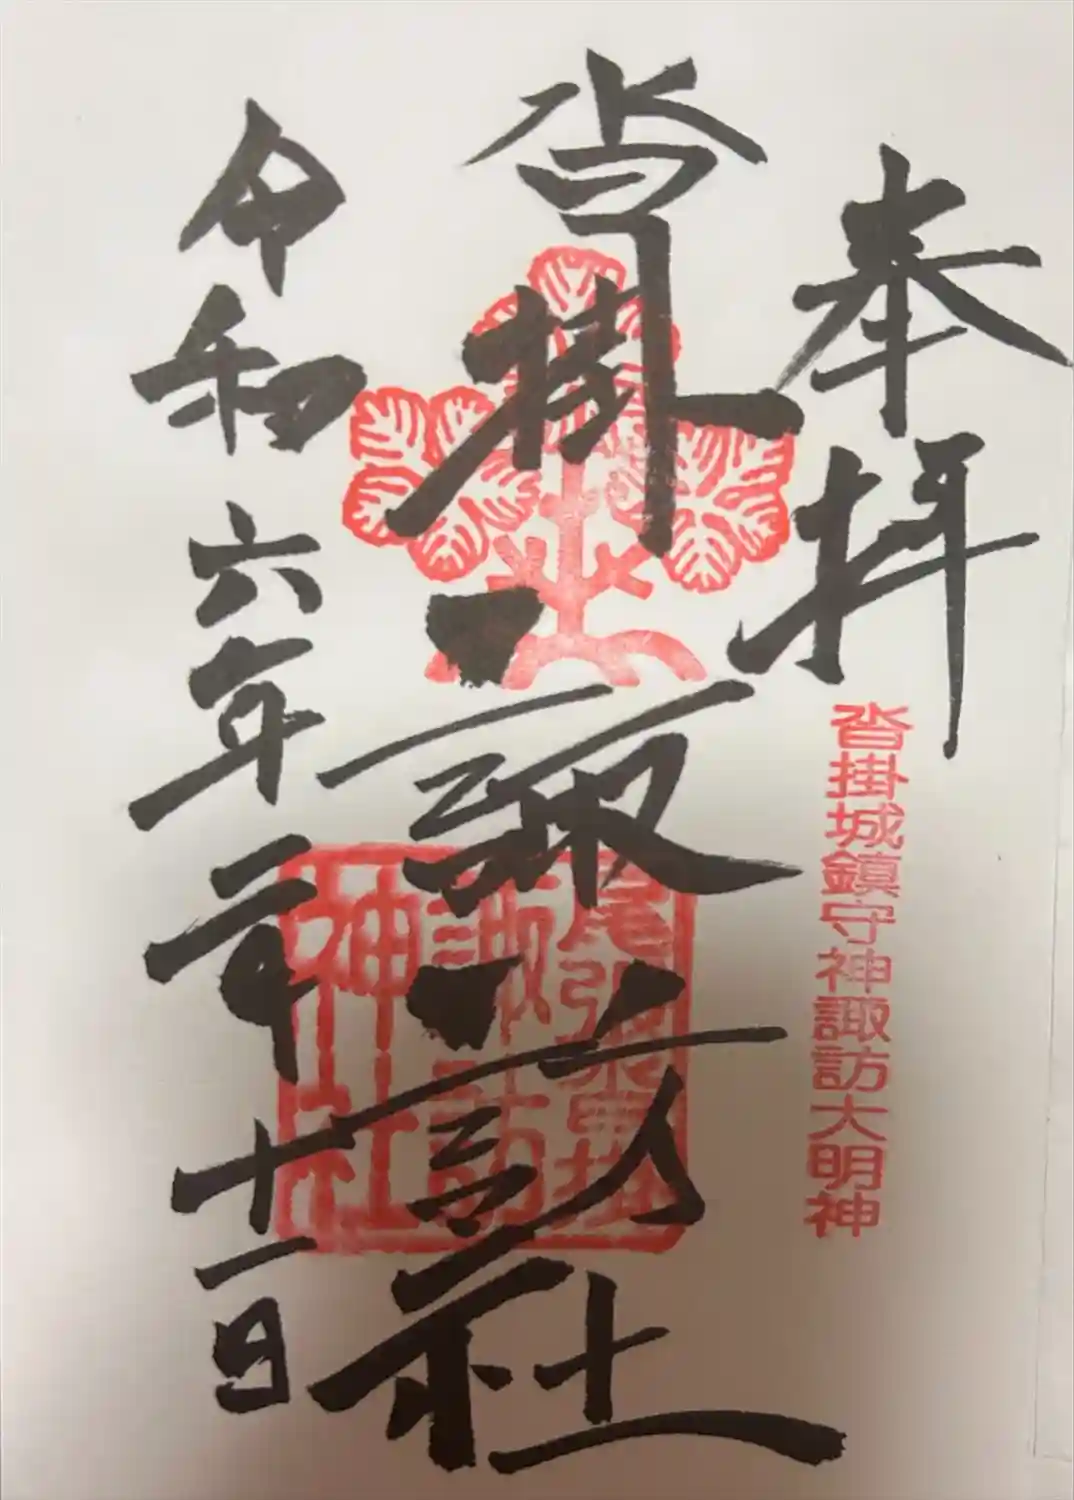 奉拝
沓掛城鎮守神諏訪大明神
沓掛諏訪社
尾張沓掛
諏訪
神社
令和六年二月十一日